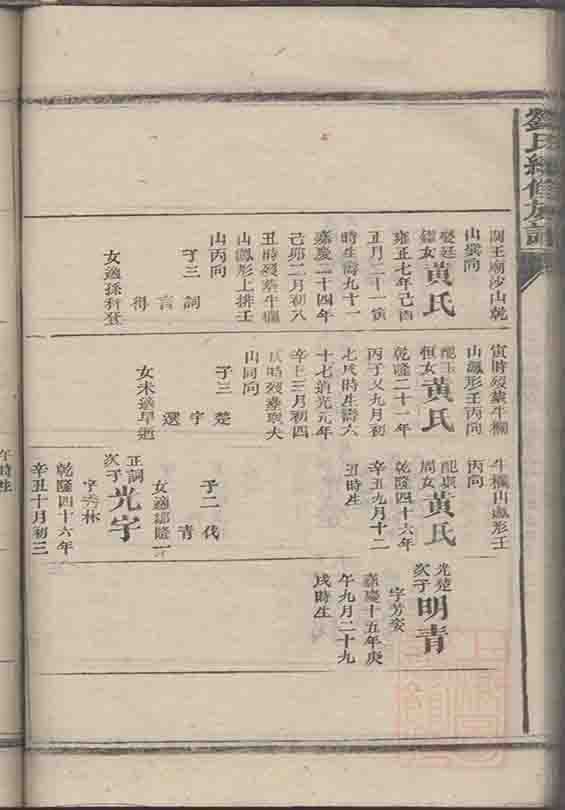 劉氏續修族譜
關王廟沙山乾
山巽向
娶廷
鏞女
黃氏
雍正七年己酉
正月二十一寅
時生壽九十一
嘉慶二十四年
己卯二月初八
丑時歿葬牛欄
山鳳形上排壬
山丙向
子三
詞
言
得
女適孫科登
寅時歿葬牛欄
山鳳形壬丙向
配玉
恒女
黃氏
乾隆二十一年
丙子又九月初
七戌時生壽六
十七道光元年
辛巳三月初四
子三
楚
宇
選
女未適早逝
牛欄山鳳形壬
丙向
周女
黃氏
乾隆四十六年
辛丑九月十二
丑時生
子二
伐
青
正詞
次子
光宇
字秀林
乾隆四十六年
辛丑十月初三
午時生
光楚
次子
明青
嘉慶十五年庚
午九月二十九
戌時生